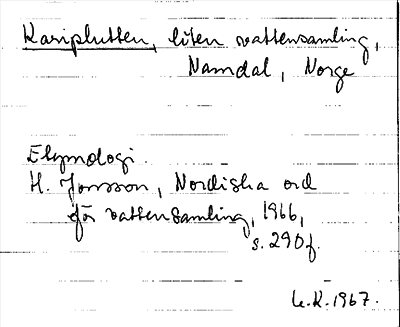 Kariplutten, liten vattensamling,
Namdal, Norge
Etymologi.
H. Jonsson, Nordiska ord
för vattensamling, 1966,
s. 290f.
U.K. 1967.